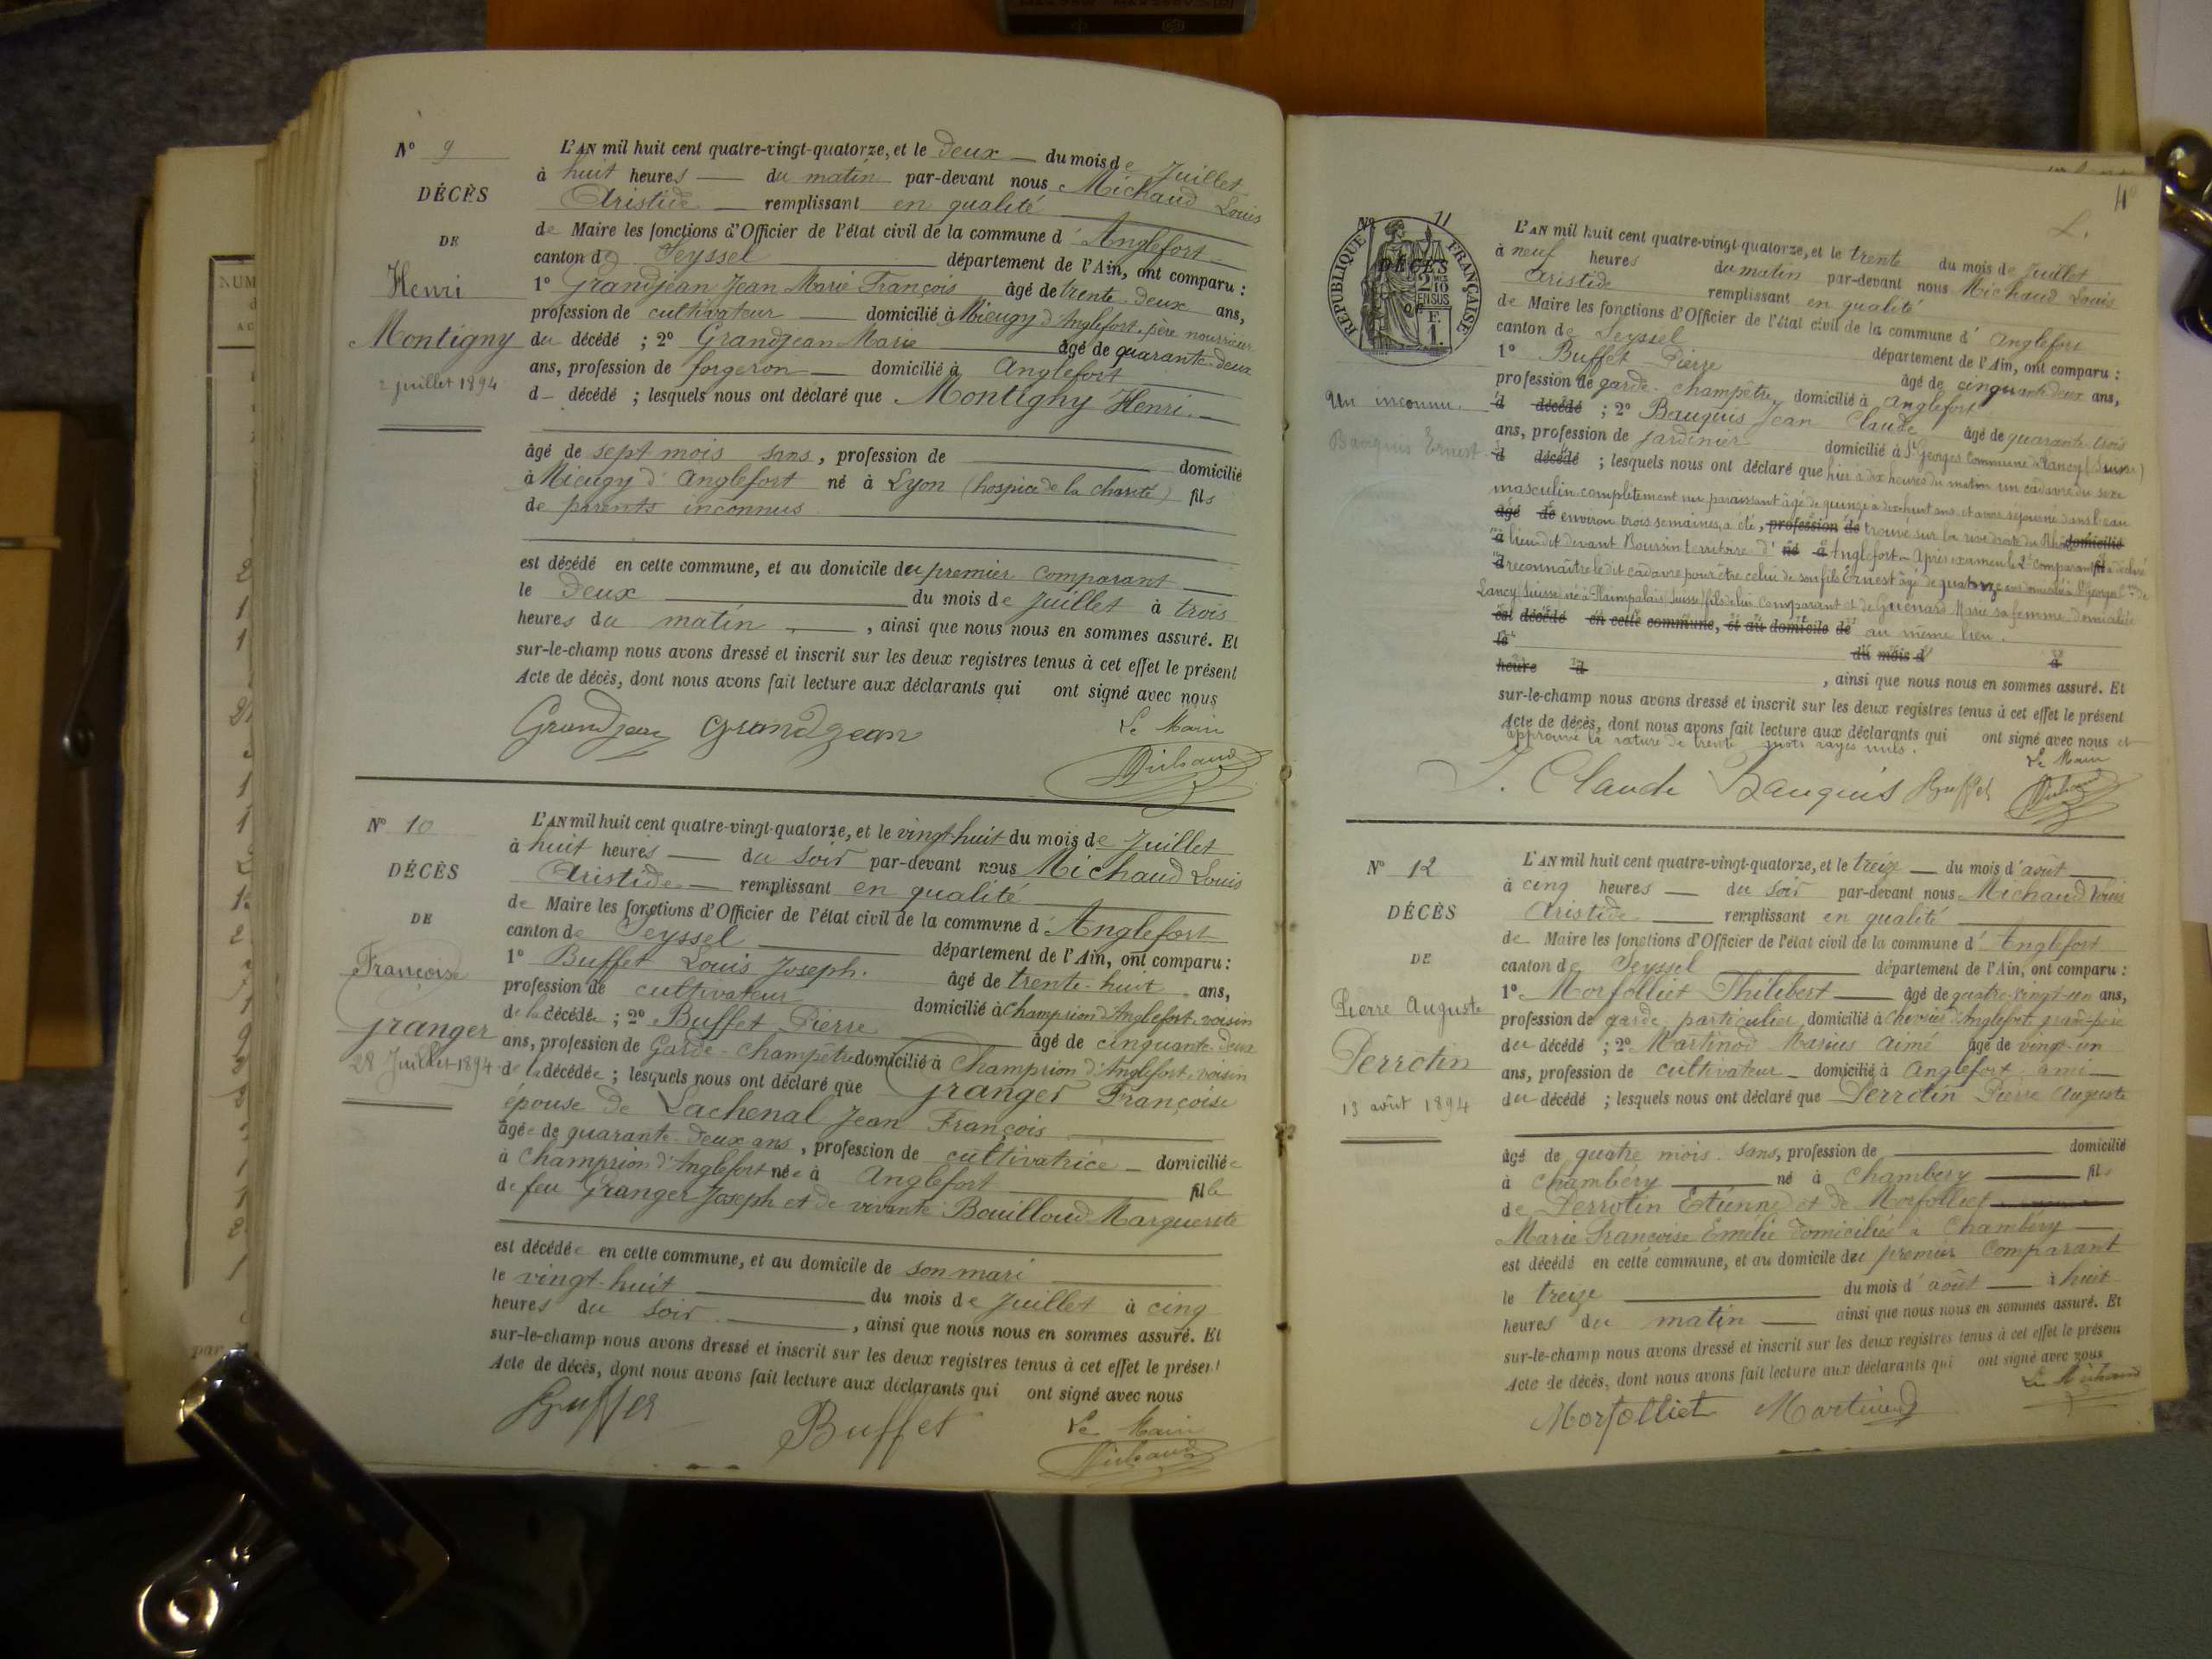 N° 9
DÉCÈS
DE
Henri
Montigny
2 juillet 1894
L'AN mil huit cent quatre-vingt-quatorze, et le deux du mois de Juillet
à huit heures du matin par-devant nous Michaud Louis
Aristide remplissant en qualité
de Maire les fonctions d'Officier de l'état civil de la commune d'Anglefort
canton de Seyssel département de l'Ain, ont comparu :
1° Grandjean Jean Marie François âgé de trente-deux ans,
profession de cultivateur domicilié à Mieugy d'Anglefort, père nourricier
du décédé ; 2° Grandjean Marie âgé de quarante-deux
ans, profession de forgeron domicilié à Anglefort
d décédé ; lesquels nous ont déclaré que Montigny Henri
âgé de sept mois sans, profession de domicilié
à Mieugy d'Anglefort né à Lyon (hospice de la charité) fils
de parents inconnus
est décédé en cette commune, et au domicile du premier comparant
le Deux du mois de Juillet à trois
heures du matin, ainsi que nous nous en sommes assuré. Et
sur-le-champ nous avons dressé et inscrit sur les deux registres tenus à cet effet le présent
Acte de décès, dont nous avons fait lecture aux déclarants qui ont signé avec nous
Grandjean Grandjean
Le Maire
Michaud
N° 10
DÉCÈS
DE
Françoise
Granger
28 Juillet 1894
L'AN mil huit cent quatre-vingt-quatorze, et le vingt-huit du mois de Juillet
à huit heures du soir par-devant nous Michaud Louis
Aristide remplissant en qualité
de Maire les fonctions d'Officier de l'état civil de la commune d'Anglefort
canton de Seyssel département de l'Ain, ont comparu :
1° Buffet Louis Joseph. âgé de trente-huit ans,
profession de cultivateur domicilié à Champrion d'Anglefort, voisin
de la décédée ; 2° Buffet Pierre âgé de cinquante-deux
ans, profession de Garde-Champêtre domicilié à Champrion d'Anglefort, voisin
de la décédée ; lesquels nous ont déclaré que Granger Françoise
épouse de Lachenal Jean François
âgée de quarante-deux ans, profession de cultivatrice domiciliée
à Champrion d'Anglefort née à Anglefort fille
de feu Granger Joseph et de vivante Bouilloud Marguerite
est décédée en cette commune, et au domicile de son mari
le vingt-huit du mois de Juillet à cinq
heures du soir, ainsi que nous nous en sommes assuré. Et
sur-le-champ nous avons dressé et inscrit sur les deux registres tenus à cet effet le présent
Acte de décès, dont nous avons fait lecture aux déclarants qui ont signé avec nous
Buffet
Buffet
Le Maire
Michaud
N° 11
RÉPUBLIQUE FRANÇAISE
DÉCÈS
2/10 EN SUS
F.
1.
Un inconnu.
Bauquis Ernest
L'AN mil huit cent quatre-vingt-quatorze, et le trente du mois de Juillet
à neuf heures du matin par-devant nous Michaud Louis
Aristide remplissant en qualité
de Maire les fonctions d'Officier de l'état civil de la commune d'Anglefort
canton de Seyssel département de l'Ain, ont comparu :
1° Buffet Pierre âgé de cinquante-deux ans,
profession de garde-champêtre, domicilié à Anglefort
d décédé ; 2° Bauquis Jean Claude âgé de quarante-trois
ans, profession de jardinier domicilié à St Georges Commune de Lancy (Suisse)
d décédé ; lesquels nous ont déclaré que hier à dix heures du matin un cadavre du sexe
masculin complètement nu paraissant âgé de quinze à dix-huit ans et avoir séjourné dans l'eau
âgé de environ trois semaines, a été, profession de trouvé sur la rive droite du Rhône domicilié
à lieu dit devant Boursin territoire d' né à Anglefort. Après examen le 2e comparant fil a déclaré
d reconnaître le dit cadavre pour être celui de son fils Ernest âgé de quatorze ans domicilié à St Georges Cne de
Lancy (Suisse) né à (Suisse) fils de lui comparant et de Guénard Marie sa femme domiciliée
est décédé en cette commune, et au domicile de au même lieu.
le du mois d à
heure d, ainsi que nous nous en sommes assuré. Et
sur-le-champ nous avons dressé et inscrit sur les deux registres tenus à cet effet le présent
Acte de décès, dont nous avons fait lecture aux déclarants qui ont signé avec nous et
approuvé la rature de trente mots rayés nuls.
J. Claude Bauquis Buffet
Le Maire
Michaud
N° 12
DÉCÈS
DE
Pierre Auguste
Perrotin
13 août 1894
L'AN mil huit cent quatre-vingt-quatorze, et le treize du mois d'août
à cinq heures du soir par-devant nous Michaud Louis
Aristide remplissant en qualité
de Maire les fonctions d'Officier de l'état civil de la commune d'Anglefort
canton de Seyssel département de l'Ain, ont comparu :
1° Morfolliet Philibert âgé de quatre-vingt-un ans,
profession de garde particulier domicilié à d'Anglefort grand-père
du décédé ; 2° Martinod Marius Aimé âgé de vingt-un
ans, profession de cultivateur domicilié à Anglefort ami
du décédé ; lesquels nous ont déclaré que Perrotin Pierre Auguste
âgé de quatre mois sans, profession de domicilié
à Chambéry né à Chambéry fils
de Perrotin Etienne et de Morfolliet
Marie Françoise Emélie domiciliés à Chambéry
est décédé en cette commune, et au domicile du premier comparant
le treize du mois d'août à huit
heures du matin ainsi que nous nous en sommes assuré. Et
sur-le-champ nous avons dressé et inscrit sur les deux registres tenus à cet effet le présent
Acte de décès, dont nous avons fait lecture aux déclarants qui ont signé avec nous
Morfolliet Martinod
Le Michaud